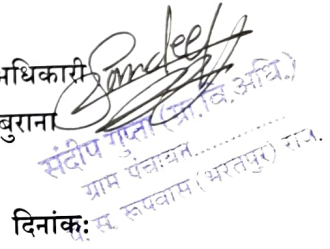 अधिकारी
बुराना
संदीप गुप्ता (ग्रा.वि.अधि.)
ग्राम पंचायत..................
पं. स. रूपवास (भरतपुर) राज.
दिनांक: